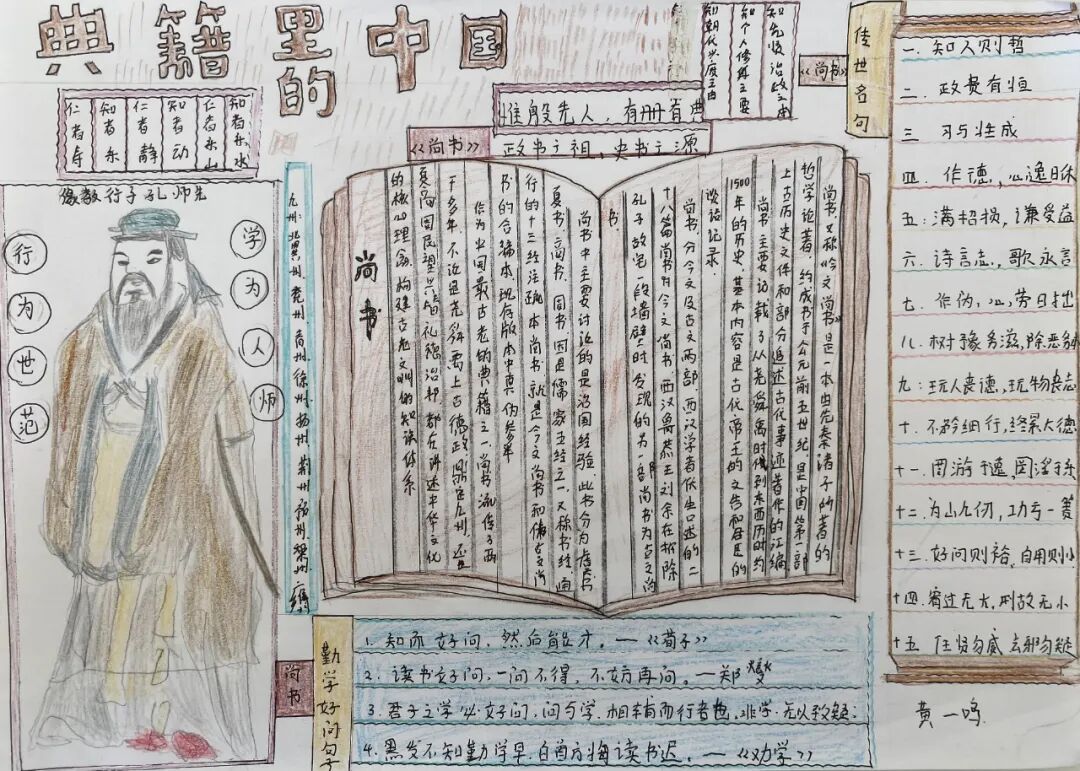 典籍里的中国
知者乐水
仁者乐山
知者动
仁者静
知者乐
仁者寿
先师孔子行教像
学为人师
行为世范
惟殷先人，有册有典
政书之祖，史书之源
《尚书》
《尚书》
传世名句
一、知人则哲
二、政贵有恒
三、习与性成
四、作德，心逸日休
五：满招损，谦受益
六、诗言志，歌永言
七、作伪，心劳日拙
八、树德务滋，除恶务
九：玩人丧德，玩物丧志
十、不矜细行，终累大德
十一、罔游于逸，罔淫于乐
十二、为山九仞，功亏一篑
十三：好问则裕，自用则小
十四、宥过无大，刑故无小
十五、任贤勿贰 去邪勿疑
黄一鸣
尚书又称《今文尚书》是一本由先秦诸子所著的
哲学论著，约成书于公元前五世纪，是中国第一部
上古历史文件和部分追述古代事迹著作的汇编
尚书主要记载了从尧舜禹时代到东西历时约
1500年的历史，基本内容是古代帝王的文告和君臣的
谈话记录。
尚书，分今文及古文两部，西汉学者伏生口述的二
十八篇尚书为今文尚书，西汉鲁恭王刘余在拆除
孔子故宅一段墙壁时，发现的另一部尚书为古文尚
书。
尚书中主要讨论的是治国经验，此书分为虞书
夏书、商书、周书，因是儒家五经之一，又称书经，通
行的十三经注疏本尚书，就是今文尚书和伪古文尚
书的合编本，现存版本中真伪参半
作为中国最古老的典籍之一，尚书流传了两
千多年，不论是尧舜禹上古德政，鼎定九州，还是
的核心理念，构建古老文明的知识体系
尚书
尚书
勤学好问句子
1. 知而好问，然后能才。—《荀子》
2. 读书好问，一问不得，不妨再问。—郑燮
3. 君子之学必好问，问与学，相辅而行者也，非学，无以致疑；
4. 黑发不知勤学早，白首方悔读书迟。—《劝学》